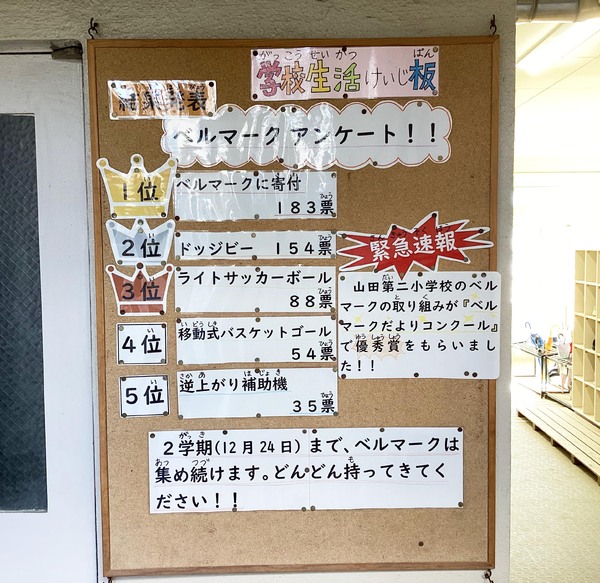 学校生活けいじ板
結果発表
ベルマークアンケート！！
1位
ベルマークに寄付
183票
2位
ドッジビー 154票
3位
ライトサッカーボール
88票
4位
移動式バスケットゴール
54票
5位
逆上がり補助機
35票
緊急速報
山田第二小学校のベル
マークの取り組みが『ベル
マークだよりコンクール』
で優秀賞をもらいまし
た！！
2学期(12月24日)まで、ベルマークは
集め続けます。どんどん持ってきてく
ださい！！